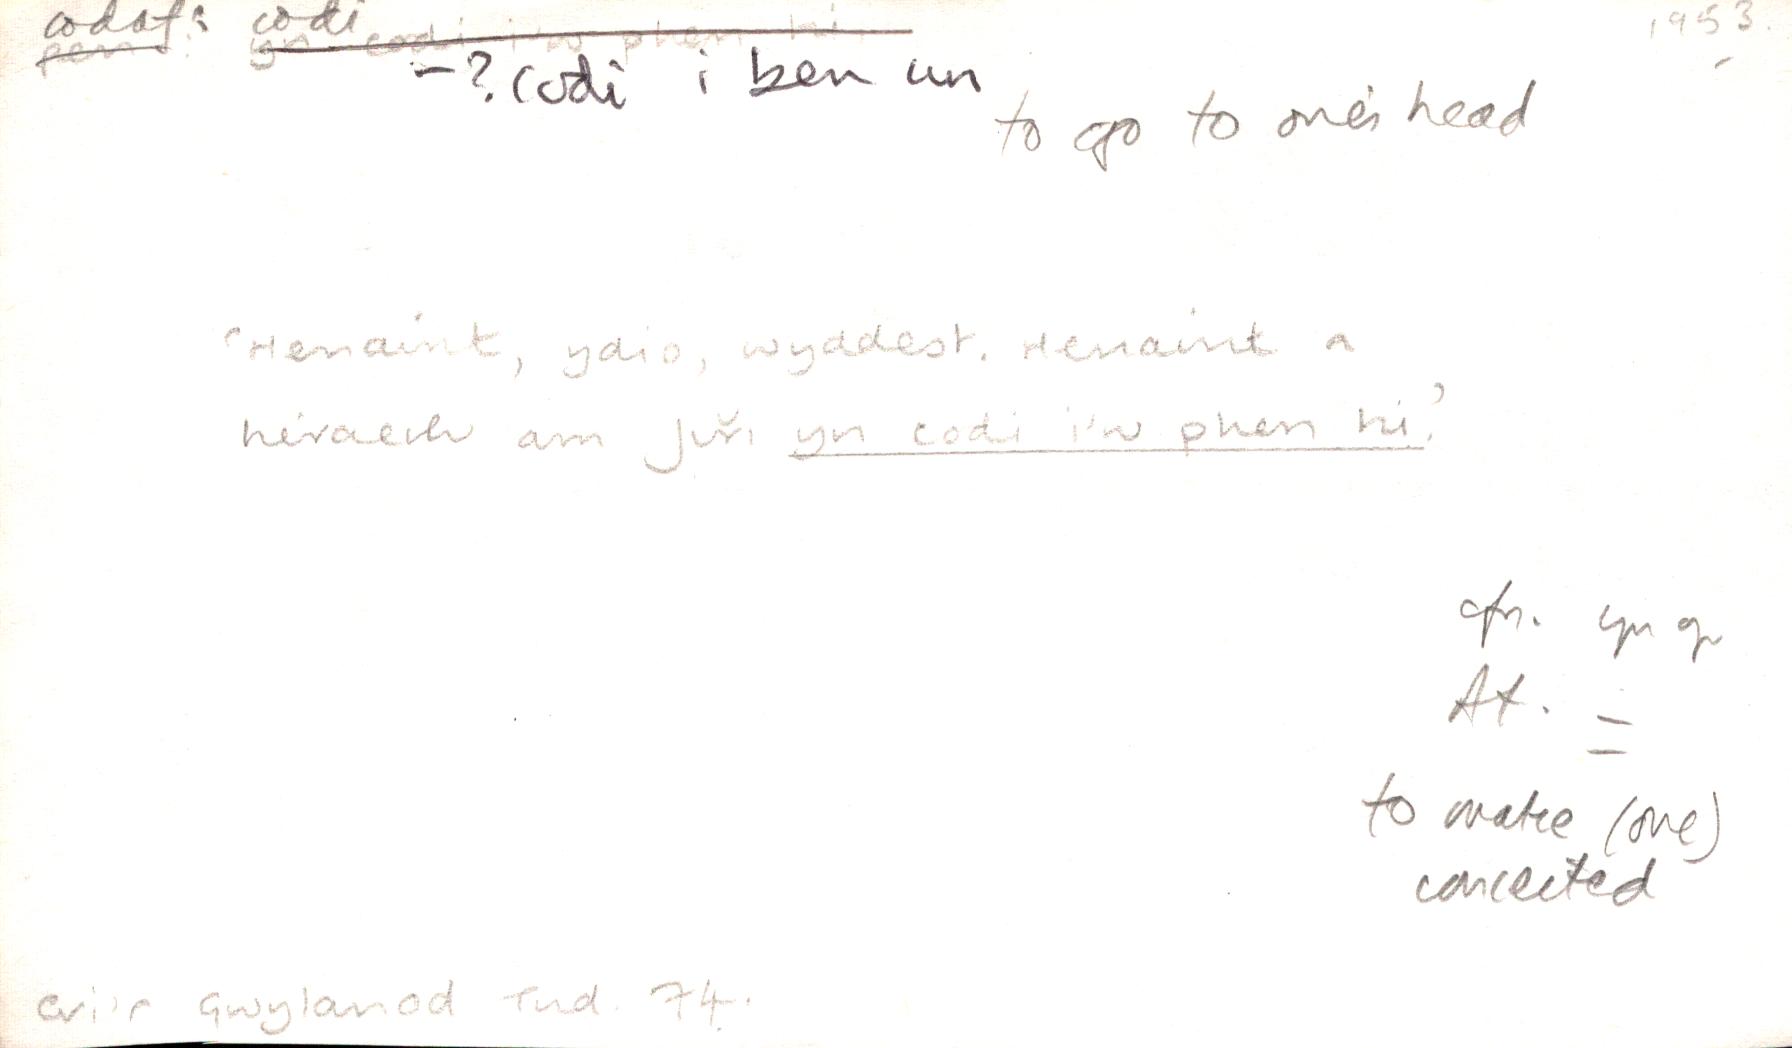 codaf: codi
pen: yn codi i'w phen hi. 1953.
-?codi i ben un
to go to one's head
'Henaint, ydio, wyddest. Henaint a
hiraeth am Juři yn codi i'w phen hi.'
cfn. yn y
At. =
to make (one)
conceited
Cri'r Gwylanod Tud. 74.